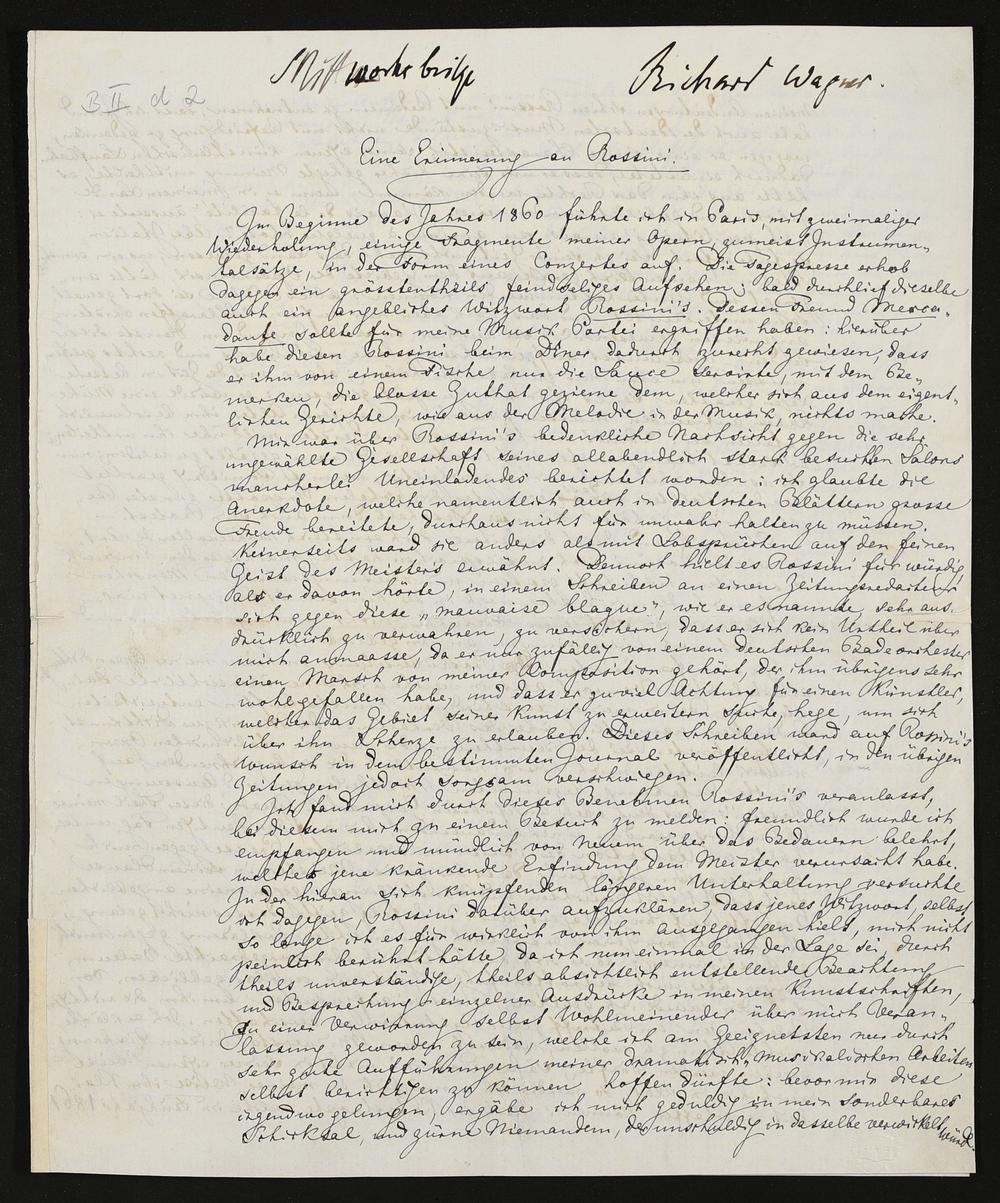 Mittwochsbeilage Richard Wagner.
B II d 2
Eine Erinnerung an Rossini.
Im Beginne des Jahres 1860 führte ich in Paris, mit zweimaliger
Wiederholung, einige Fragmente meiner Opern, zumeist Instrumen-
talsätze, in der Form eines Conzertes auf. Die Tagespresse erhob
dagegen ein grösstentheils feindseliges Aufsehen; bald durchlief dieselbe
auch ein angebliches Witzwort Rossini's. Dessen Freund Merca-
dante sollte für meine Musik Partei ergriffen haben: hierüber
habe diesen Rossini beim Diner dadurch zurecht gewiesen, dass
er ihm von einem Fische nur die Sauce servirte, mit dem Be-
merken, die blosse Zuthat gezieme dem, welcher sich aus dem eigent-
lichen Gerichte, wie aus der Melodie in der Musik, nichts mache.
Mir war über Rossini's bedenkliche Nachsicht gegen die sehr
ungewählte Gesellschaft seines allabendlich stark besuchten Salons
mancherlei Uneinladendes berichtet worden: ich glaubte die
Anekdote, welche namentlich auch in deutschen Blättern grosse
Freude bereitete, durchaus nicht für unwahr halten zu müssen.
Keinerseits ward sie anders als mit Lobsprüchen auf den feinen
Geist des Meisters erwähnt. Dennoch hielt es Rossini für würdig,
als er davon hörte, in einem Schreiben an einen Zeitungsredacteur
sich gegen diese „mauvaise blague", wie er es nannte, sehr aus-
drücklich zu verwahren, zu versichern, dass er sich kein Urtheil über
mich anmaasse, da er nur zufällig von einem deutschen Badeorchester
einen Marsch von meiner Komposition gehört, der ihm übrigens sehr
wohlgefallen habe, und dass er zu viel Achtung für einen Künstler,
welcher das Gebiet seiner Kunst zu erweitern suche, hege, um sich
über ihn Scherze zu erlauben. Dieses Schreiben ward auf Rossini's
Wunsch in dem bestimmten Journal veröffentlicht, in den übrigen
Zeitungen jedoch sorgsam verschwiegen.
Ich fand mich durch dieses Benehmen Rossini's veranlasst,
bei diesem mich zu einem Besuch zu melden: freundlich wurde ich
empfangen und mündlich von Neuem über das Bedauern belehrt,
welches jene kränkende Erfindung dem Meister verursacht habe.
In der hieran sich knüpfenden längeren Unterhaltung versuchte
ich dagegen, Rossini darüber aufzuklären, dass jenes Witzwort, selbst
so lange ich es für wirklich von ihm ausgegangen hielt, mich nicht
peinlich berührt hätte, da ich nun einmal in der Lage sei, durch
theils unverständige, theils absichtlich entstellende Beachtung
und Besprechung einzelner Ausdrücke in meinen Kunstschriften,
zu einer Verwirrung selbst Wohlmeinender über mich Veran-
lassung geworden zu sein, welche ich am Geeignetsten nur durch
sehr gute Aufführungen meiner dramatisch-musikalischen Arbeiten
selbst berichtigen zu können hoffen dürfte: bevor mir diese
irgendwo gelungen, ergäbe ich mich geduldig in mein sonderbares
Schicksal, und zürne Niemandem, der unschuldig in dasselbe verwickelt würde.